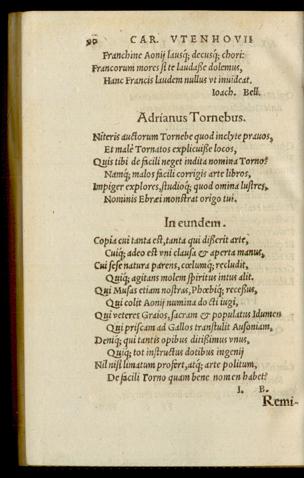 90 CAR. VTENHOVII
Franchine Aonij lausq; decusq; chori:
Francorum mores si te laudaße dolemus,
Hanc Francis laudem nullus vt inuideat.
Ioach. Bell.
Adrianus Tornebus.
Niteris auctorum Tornebe quod inclyte prauos,
Et malè Tornatos explicuiße locos,
Quis tibi de facili neget indita nomina Torno?
Namq; malos facili corrigis arte libros,
Impiger explores, studioq; quod omina lustres,
Nominis Ebræi monstrat origo tui.
In eundem.
Copia cui tanta est, tanta qui dißerit arte,
Cuiq; adeo est vni clausa & aperta manus,
Cui sese natura parens, cœlumq; recludit,
Quiq; agitans molem spiritus intus alit.
Qui Musas etiam nostras, Phœbiq; receßus,
Qui colit Aonij numina docti iugi,
Qui veteres Graios, sacram & populatus Idumen
Qui priscam ad Gallos transtulit Ausoniam,
Deniq; qui tantis opibus ditißimus vnus,
Quiq; tot instructus dotibus ingenij
Nil nisi limatum profert, atq; arte politum,
De facili Torno quam bene nomen habet?
I. B.
Remi-